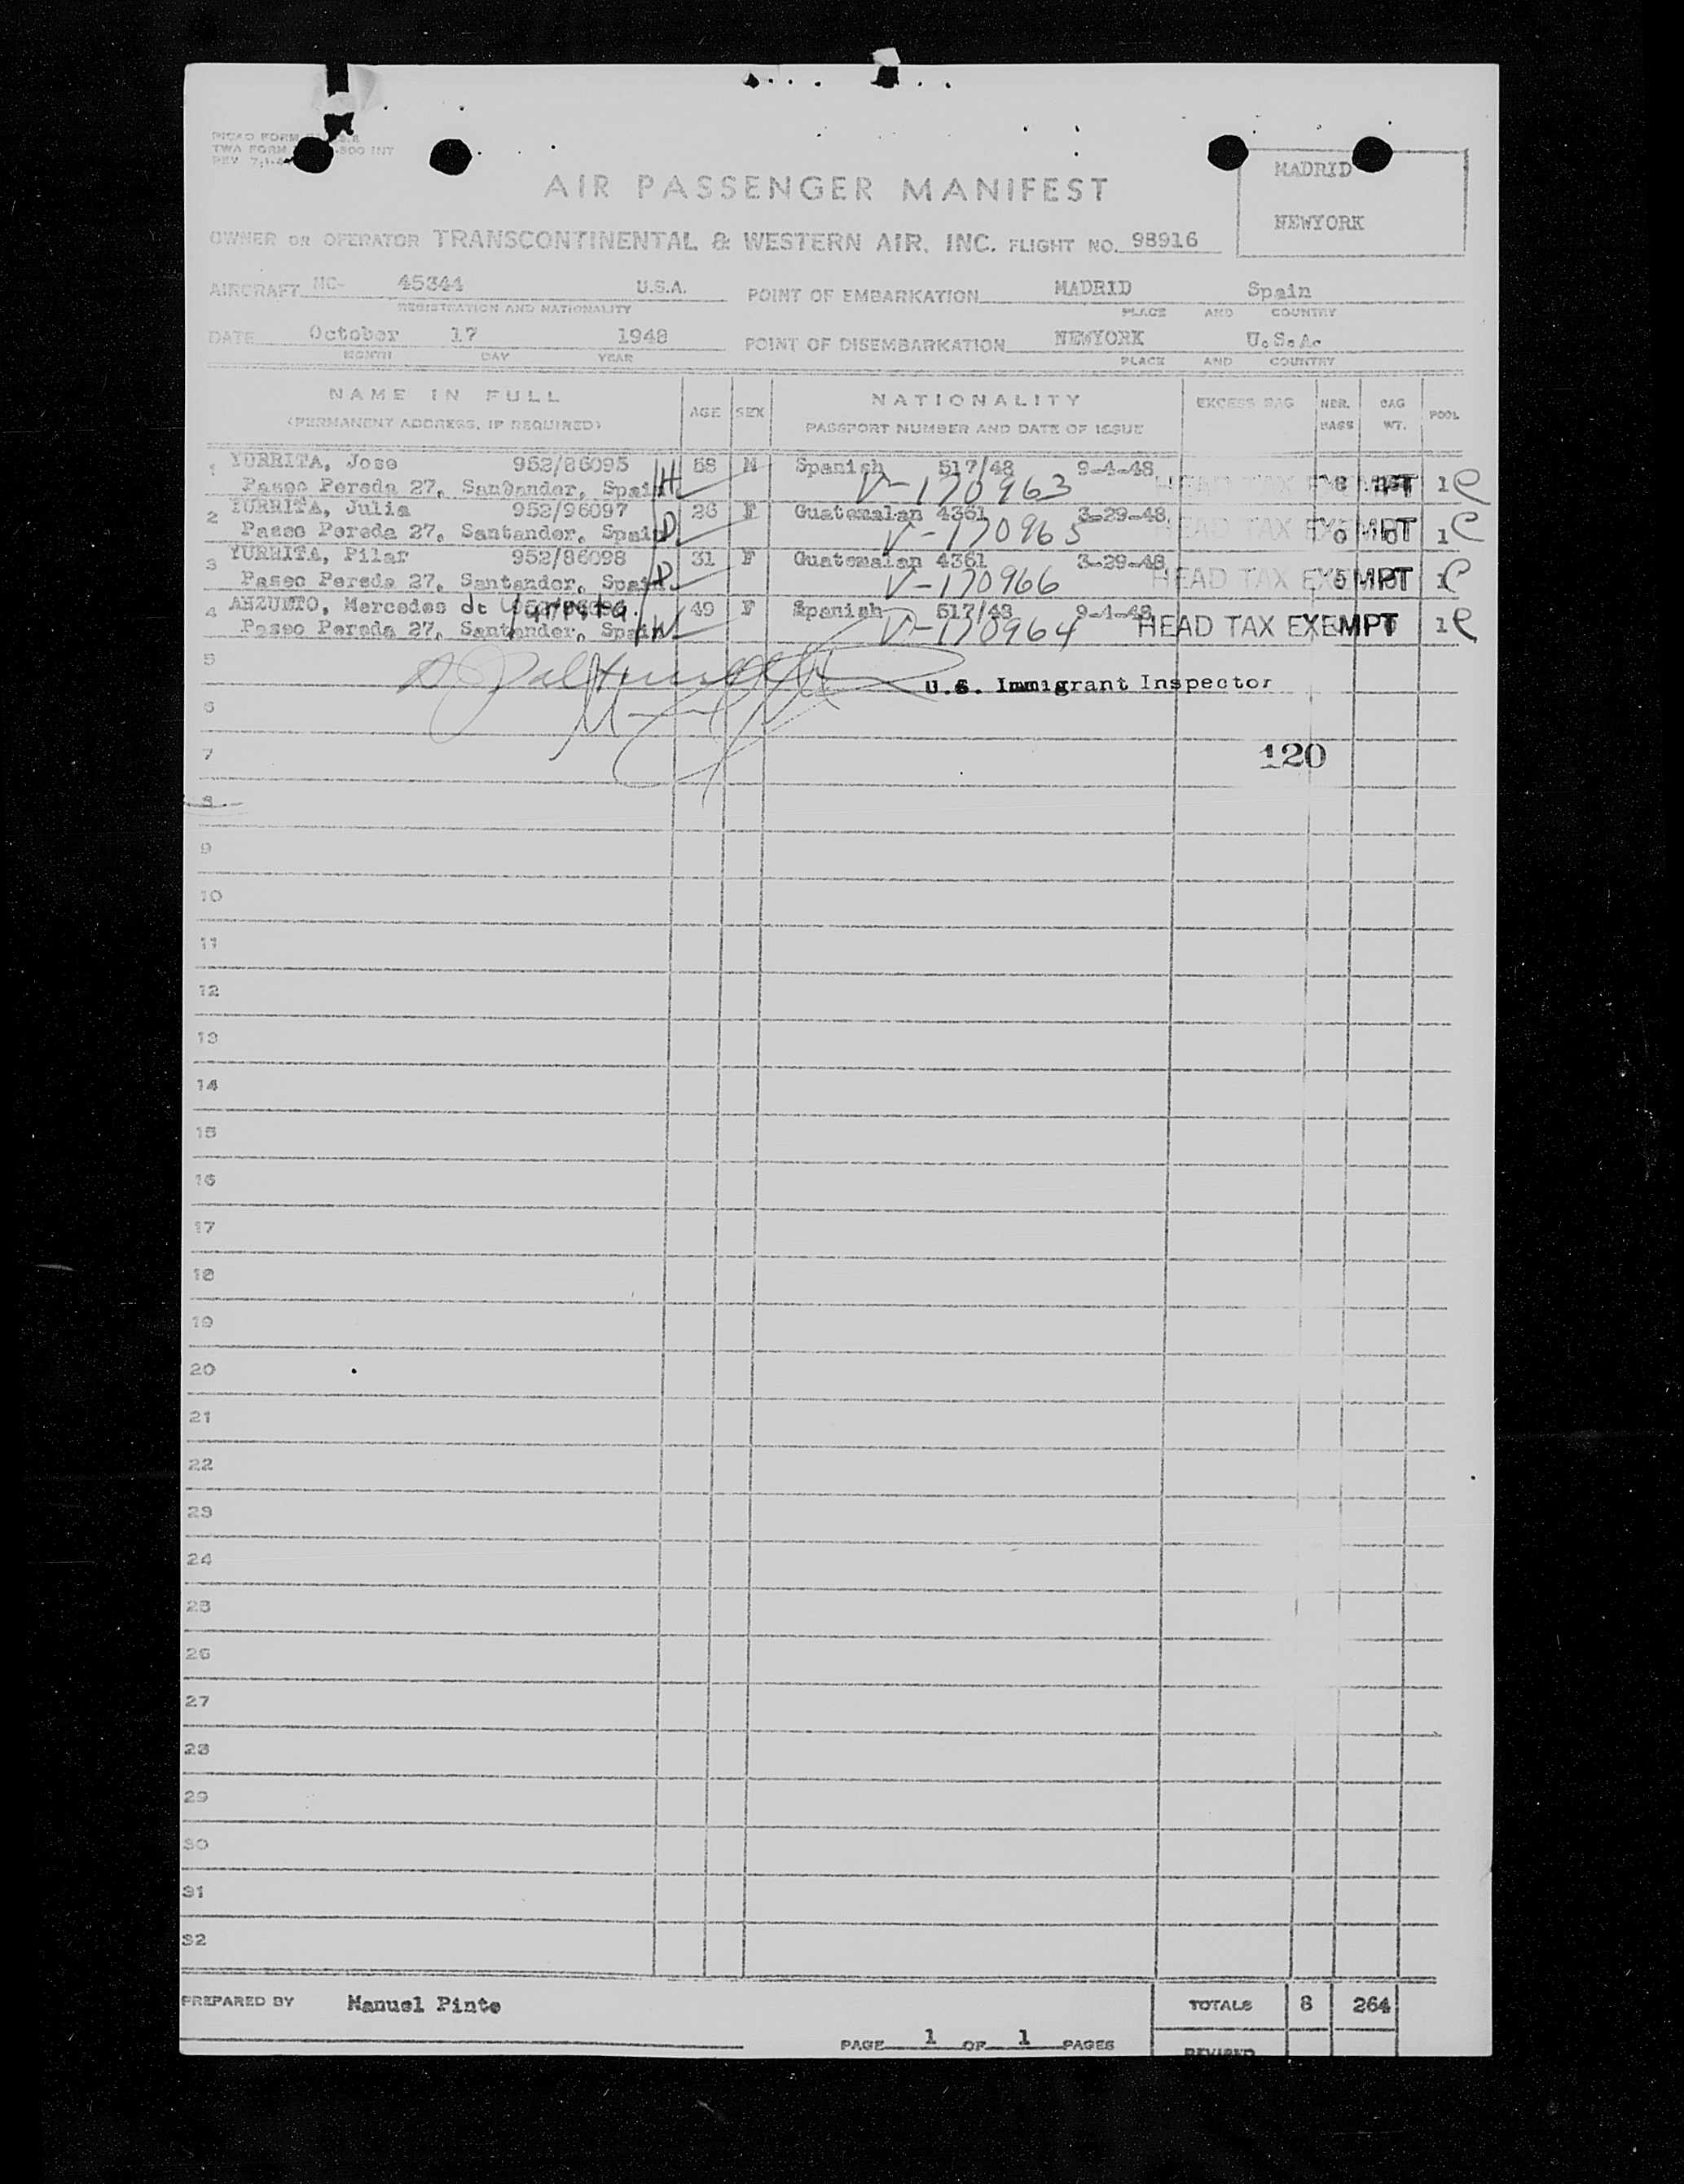 TWA FORM
MADRID
NEWYORK
AIR PASSENGER MANIFEST
OWNER OR OPERATOR TRANSCONTINENTAL & WESTERN AIR, INC. FLIGHT NO. 98916
AIRCRAFT NC- 45344 U.S.A. POINT OF EMBARKATION MADRID Spain
REGISTRATION AND NATIONALITY PLACE AND COUNTRY
DATE October 17 1948 POINT OF DISEMBARKATION NEWYORK U.S.A.
MONTH DAY YEAR PLACE AND COUNTRY
NAME IN FULL AGE SEX NATIONALITY EXCESS BAG NBR. BAGS CAG WT. POOL
(PERMANENT ADDRESS, IF REQUIRED) PASSPORT NUMBER AND DATE OF ISSUE
1 YURRITA, Jose 952/86095 H 58 M Spanish 517/48 9-4-48
Paseo Pereda 27, Santander, Spain V-170963 HEAD TAX EXEMPT 1
2 YURRITA, Julia 952/96097 D 26 F Guatemalan 4361 3-29-48
Paseo Pereda 27, Santander, Spain V-170965 HEAD TAX EXEMPT 1
3 YURRITA, Pilar 952/86098 D 31 F Guatemalan 4361 3-29-48
Paseo Pereda 27, Santander, Spain V-170966 HEAD TAX EXEMPT 1
4 Mercedes de Yurrita W 49 F Spanish 517/48 9-4-48
Paseo Pereda 27, Santander, Spain V-170964 HEAD TAX EXEMPT 1
5
U.S. Immigrant Inspector
6
7 120
8
9
10
11
12
13
14
15
16
17
18
19
20
21
22
23
24
25
26
27
28
29
30
31
32
PREPARED BY Manuel Pinto TOTALS 8 264
PAGE 1 OF 1 PAGES
REVISED